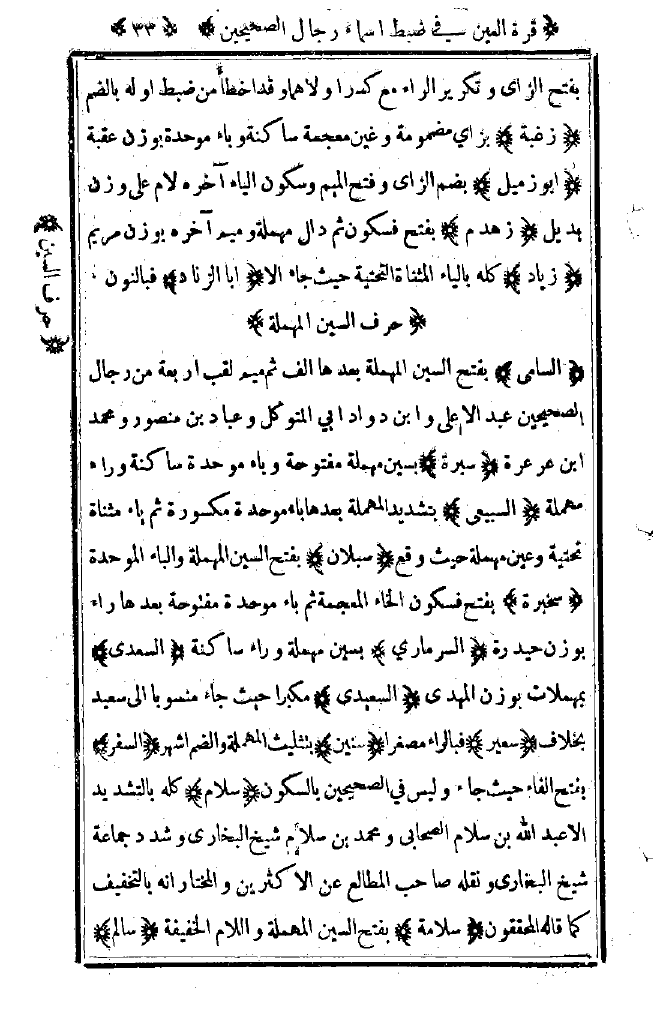 ﴿ قرة العين في ضبط اسماء رجال الصحيحين ﴾ ﴿ ٣٣ ﴾
بفتح الزاى وتكرير الراء مع كسر اولاهما وقد اخطأ من ضبط اوله بالضم
﴿ زغبة ﴾ بزاي مضمومة وغين معجمة ساكنة وباء موحدة بوزن عقبة
﴿ ابو زميل ﴾ بضم الزاى وفتح الميم وسكون الياء آخره لام على وزن
هديل ﴿ زهدم ﴾ بفتح فسكون ثم دال مهملة وميم آخره بوزن مريم
﴿ زياد ﴾ كله بالياء المثناة التحتية حيث جاء الا ﴿ ابا الزناد ﴾ فبالنون
﴿ حرف السين المهملة ﴾
﴿ السامى ﴾ بفتح السين المهملة بعدها الف ثم ميم لقب اربعة من رجال
الصحيحين عبد الاعلى وابن دواد ابي المتوكل وعباد بن منصور ومحمد
ابن عرعرة ﴿ سبرة ﴾ بسين مهملة مفتوحة وباء موحدة ساكنة وراء
مهملة ﴿ السبيعى ﴾ بتشديد المهملة بعدها باء موحدة مكسورة ثم ياء مثناة
تحتية وعين مهملة حيث وقع ﴿ سبلان ﴾ بفتح السين المهملة والباء الموحدة
﴿ سخبرة ﴾ بفتح فسكون الخاء المعجمة ثم باء موحدة مفتوحة بعدها راء
بوزن حيدرة ﴿ السرماري ﴾ بسين مهملة وراء ساكنة ﴿ السعدى ﴾
بمهملات بوزن المهدى ﴿ السعيدى ﴾ مكبرا حيث جاء منسوبا الى سعيد
بخلاف ﴿ سعير ﴾ فبالراء مصغرا ﴿ سنين ﴾ بتثليث المهملة والضم اشهر ﴿ السفر ﴾
بفتح الفاء حيث جاء وليس في الصحيحين بالسكون ﴿ سلام ﴾ كله بالتشديد
الا عبد الله بن سلام الصحابى ومحمد بن سلام شيخ البخارى وشدد جماعة
شيخ البخارى ونقله صاحب المطالع عن الاكثرين والمختار انه بالتخفيف
كما قاله المحققون ﴿ سلامة ﴾ بفتح السين المهملة واللام الخفيفة ﴿ سالم ﴾
﴿ حرف السين ﴾